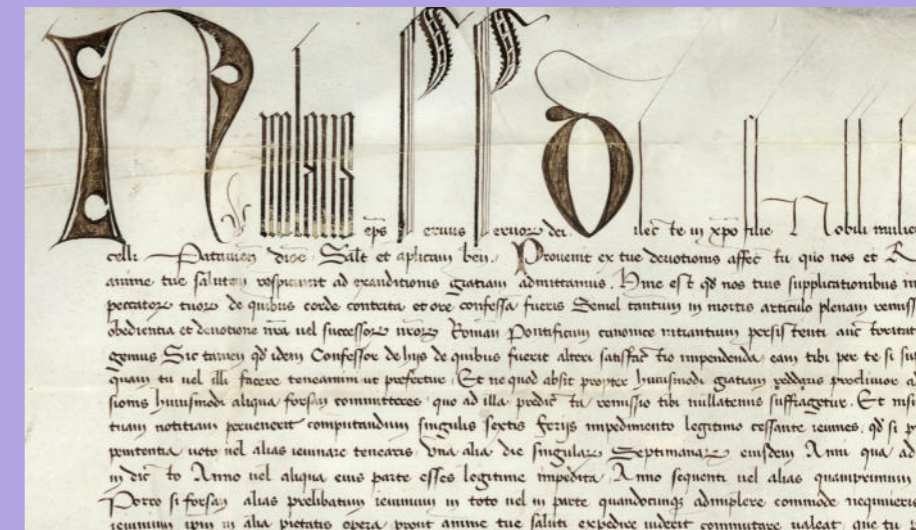 eps seruus seruor dei ilec te in xpo filie Nobili mulie
celli Patauien dioc Salt et aplicam ben Prouenit ex tue deuotionis affec tu quo nos et R
anime tue salutem respiciunt ad exauditionis gratiam admittamus Hinc est qd nos tuis supplicationibus in
peccator tuor de quibus corde contrita et ore confessa fueris Semel tantum in mortis articulo plenam remiss
obedientia et deuotione nra uel successor nror Roman Pontificum canonice intrantium persis tenti auc toritat
gemus Sic tamen qd idem Confessor de hijs de quibus fuerit alteri satisfac tio impendenda eam tibi per te si sup
quam tu uel illi facere teneamini ut prefertur Et ne quod absit propter huiusmodi gratiam reddaris procliuior a
sionis huiusmodi aliqua forsan committeres quo ad illa predic ta remissio tibi nullatenus suffragetur Et nisi
tuam notitiam peruenerit computandum singulis sextis ferijs impedimento legitimo cessante ieiunes qd si p
penitentia uoto uel alias ieiunare tenearis Vna alia die singular Septimanar eiusdem Anni qua ad
in dic to Anno uel aliqua eius parte esses legitime impedita Anno sequenti uel alias quamprimum
Porro si forsan alias prelibatum ieiunium in toto uel in parte quandocunq adimplere commode nequiueri
ieiunium ipm in alia pietatis opera prout anime tue saluti expedire uiderit commutare ualeat que tu p